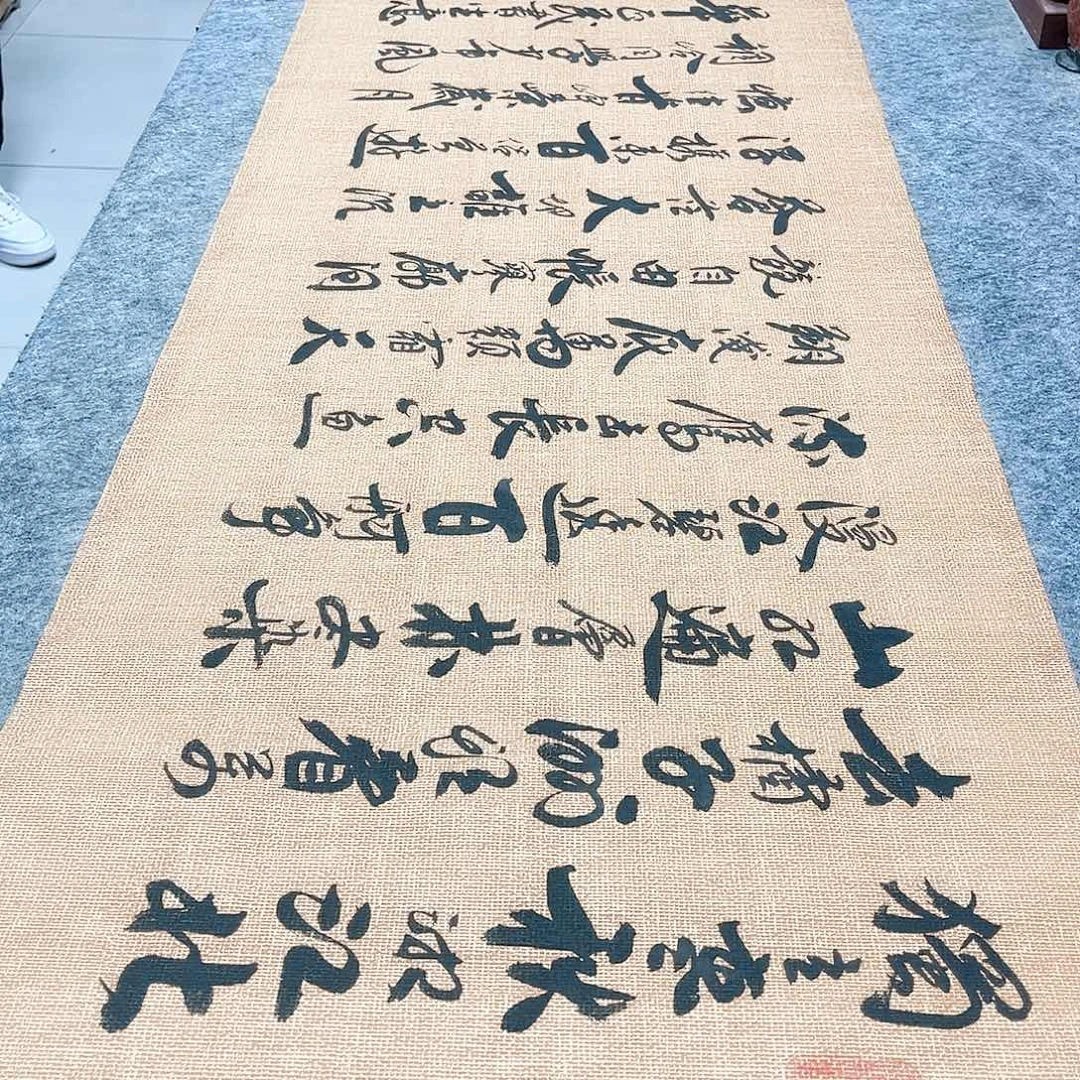 獨立寒秋湘江北
去橘子洲頭看万
山红遍層林尽染
漫江碧透百舸爭
流鷹击長空魚
翔淺底萬類霜天
競自由悵寥廓问
蒼茫大地誰主沉
浮携來百侣曾遊
憶往昔峥嵘歲月
稠恰同學少年風
華正茂書生意